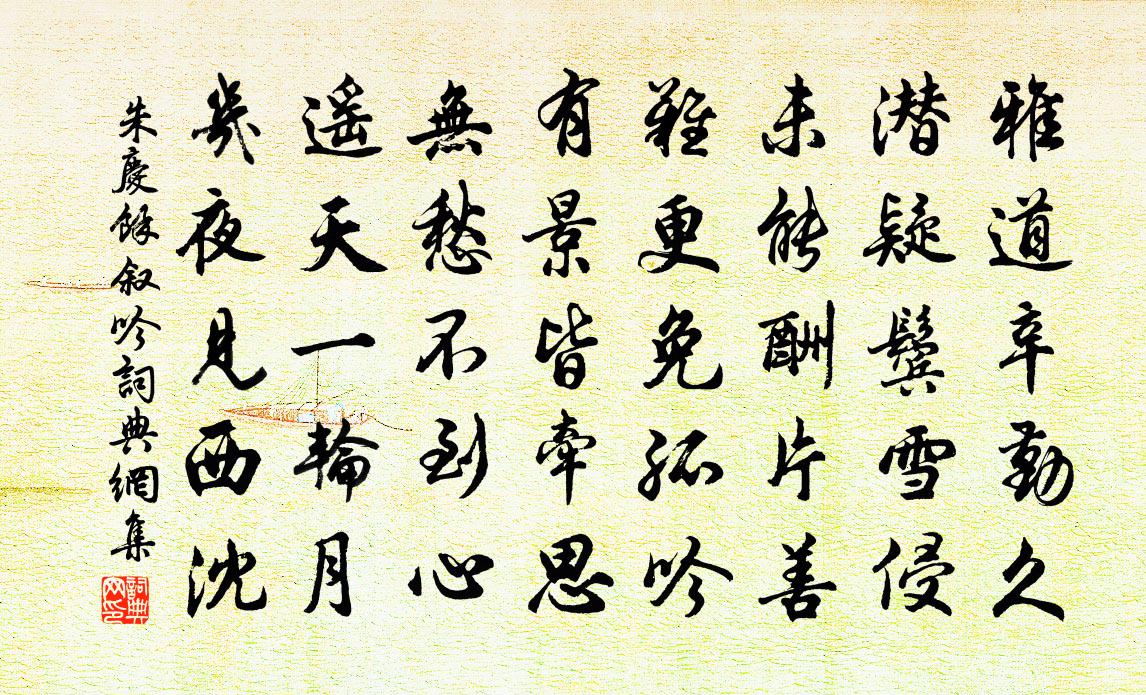 雅道辛勤久
潜疑鬓雪侵
未能酬片善
難更免孤吟
有景皆牽思
無愁不到心
遥天一輪月
幾夜見西沈
朱慶餘叙吟詞典網集
詞典网印